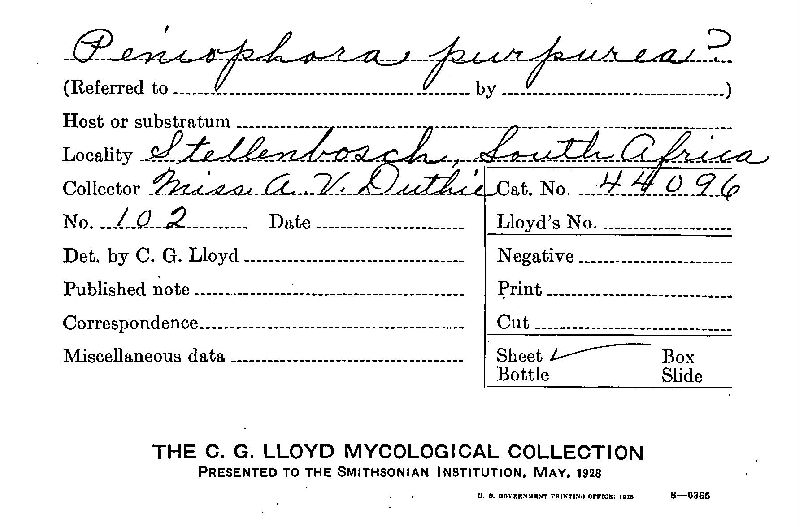 Peniophora purpurea?
(Referred to by )
Host or substratum
Locality Stellenbosch, South Africa
Collector Miss A. V. Duthie Cat. No. 44096
No. 102 Date Lloyd's No.
Det. by C. G. Lloyd Negative
Published note Print
Correspondence Cut
Miscellaneous data Sheet ✓ Box
Bottle Slide
THE C. G. LLOYD MYCOLOGICAL COLLECTION
PRESENTED TO THE SMITHSONIAN INSTITUTION, MAY, 1928
U. S. GOVERNMENT PRINTING OFFICE: 1928 8—6365